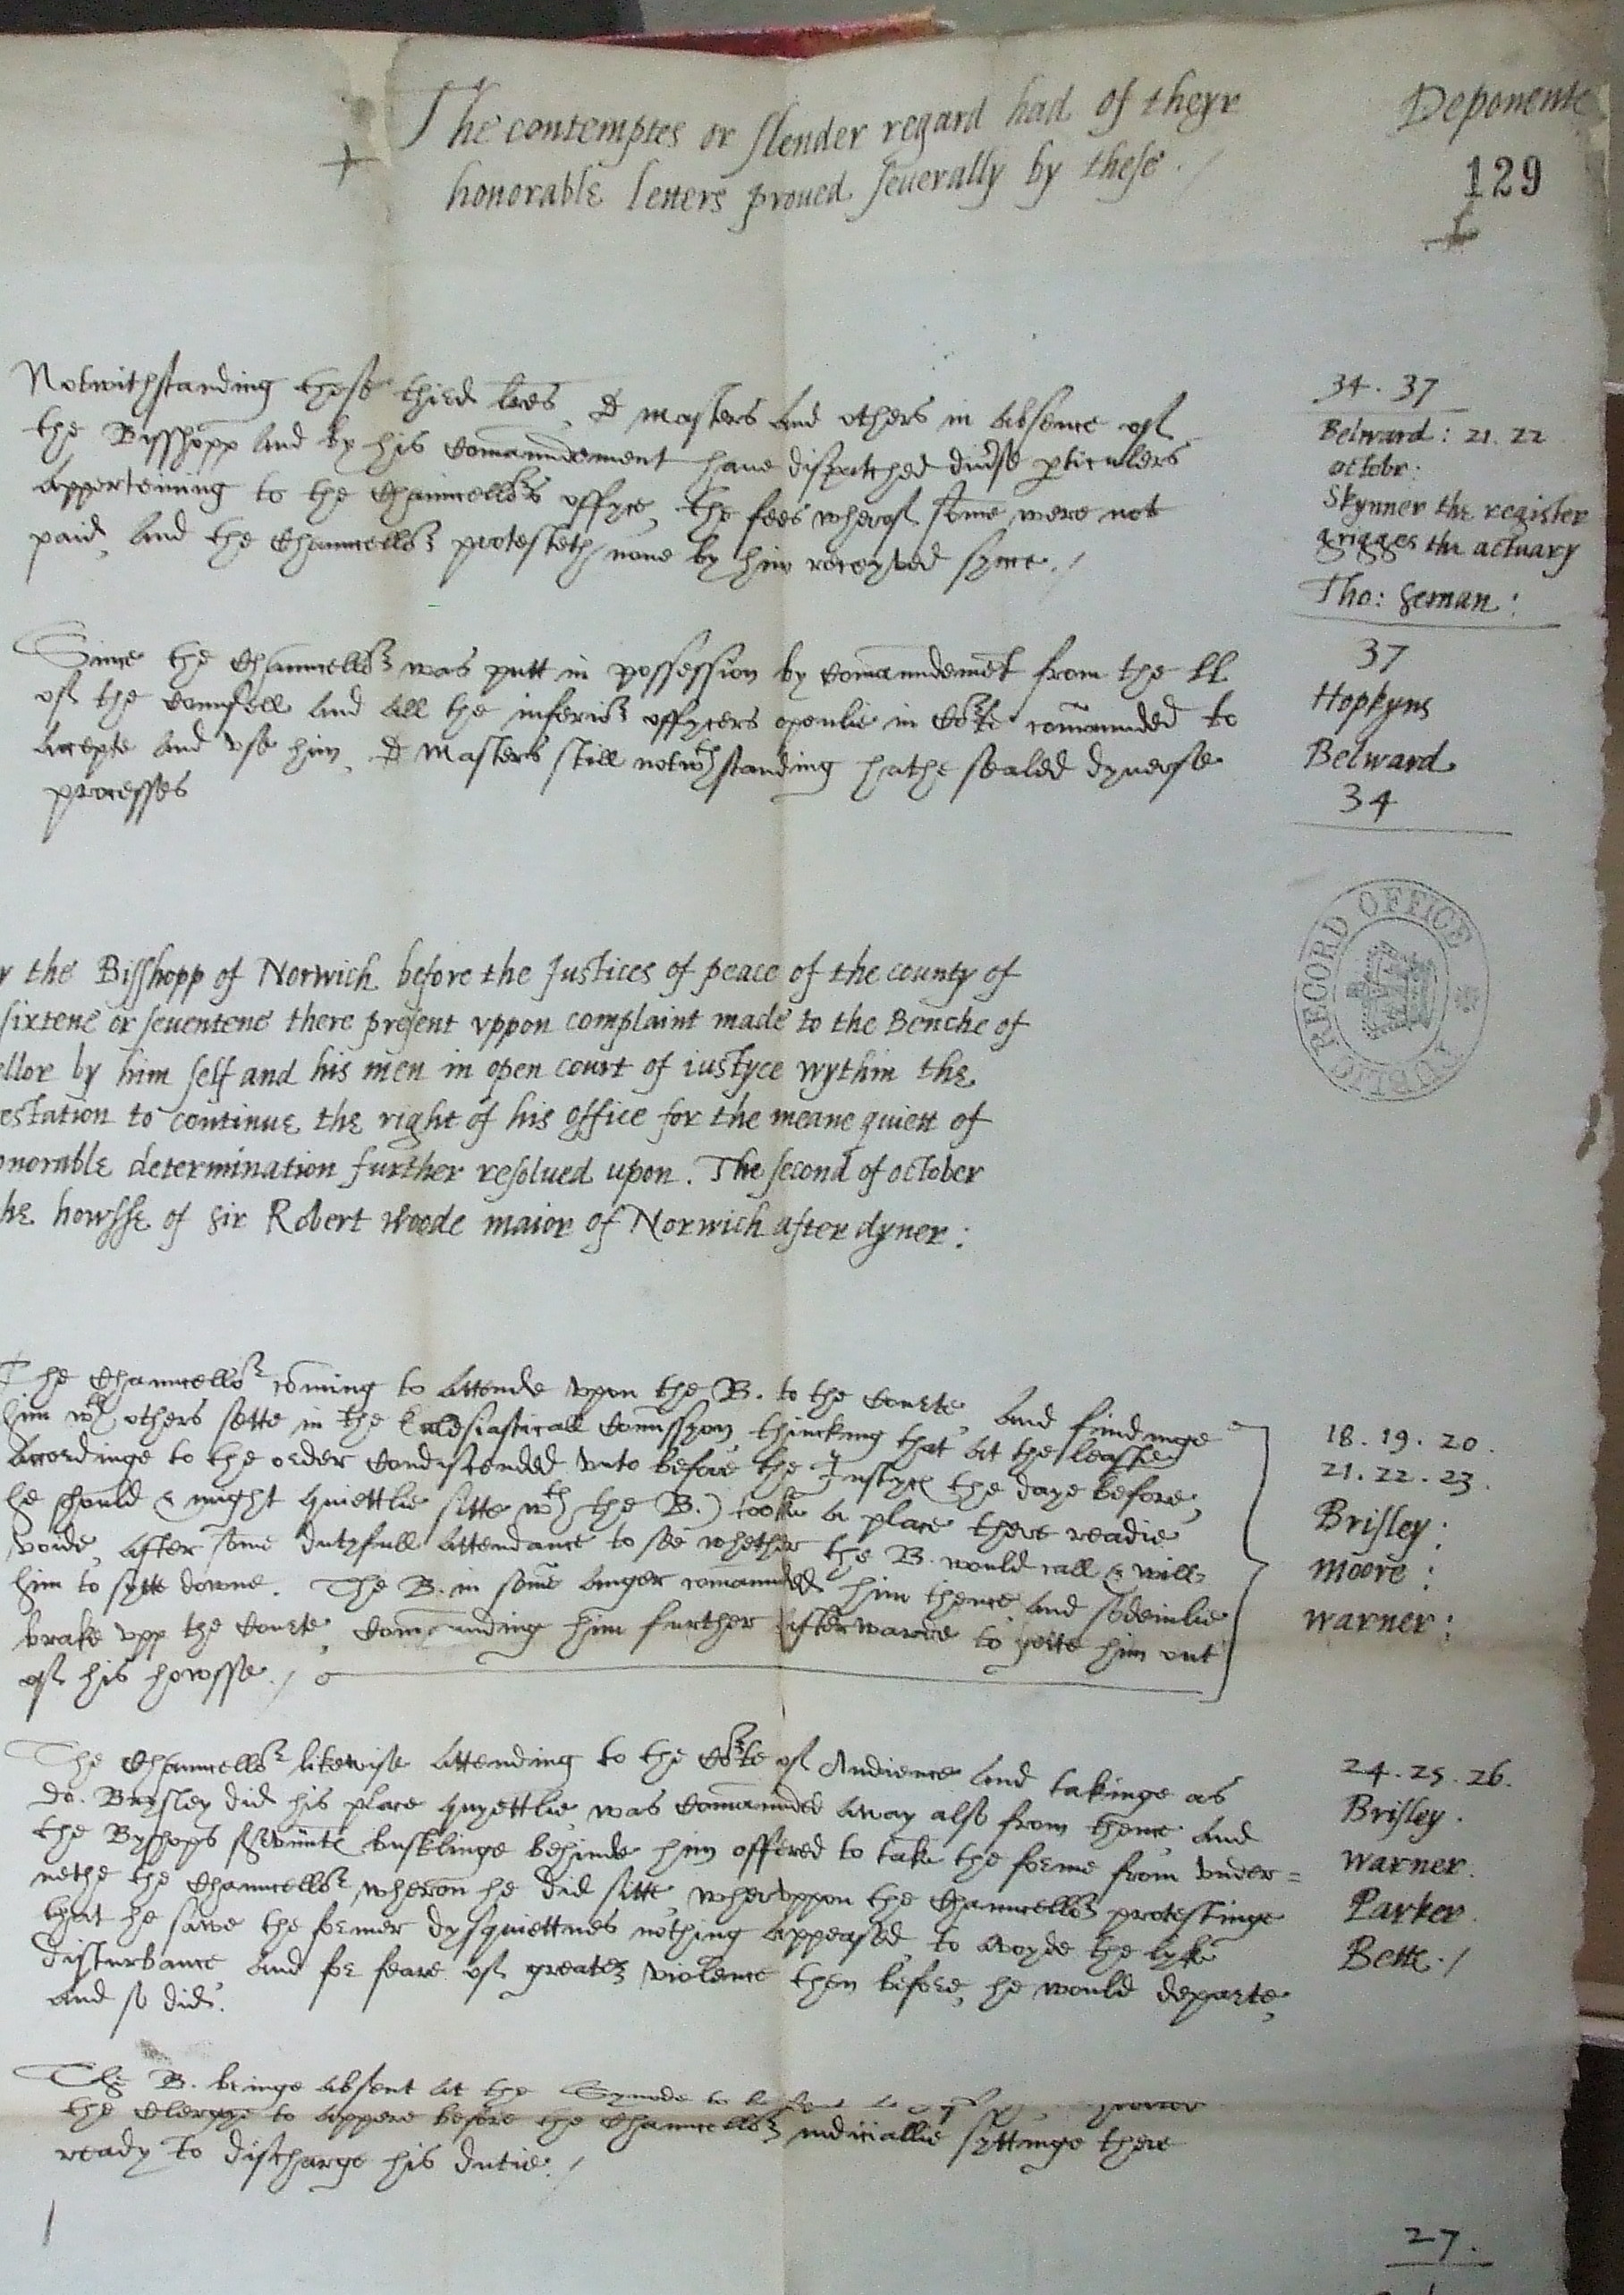 The contemptes or slender regard had of theyr
honorable letters proued seuerally by these ./
Deponente
129
Notwithstanding these third lres, D Masters and others in absence of
the Bisshopp and by his Comaundement haue dispatched diuse pticulers
apperteining to the Chauncellors offyce, the fees wherof some were not
paid, and the Chauncellor protesteth, none by him receyved synce ./
34 . 37
Belward : 21. 22
octobr:
Skynner the register
griggs the actuary
Tho: Seman :
Since the Chauncellor was putt in possession by Comaundemet from the LL
of the Counsell and all the inferior offycers openlie in Corte comaunded to
accepte and vse him, D Masters still notwthstanding hathe sealed dyuerse
processes
37
Hopkyns
Belward
34
PUBLIC RECORD OFFICE
y the Bisshopp of Norwich before the Justices of peace of the county of
sixtene or seuentene there present vppon complaint made to the Benche of
ellor by him self and his men in open court of iustyce wythin the
estation to continue the right of his office for the meane quiett of
onorable determination further resolued upon. The second of october
he howsse of Sir Robert Woode maior of Norwich after dyner :
The Chauncellor coming to attende vpon the B. to the Courte, and findinge
him wth others sette in the Ecclesiasticall Comissyon, thincking that at the leaste
accordinge to the order Condiscended vnto before the Justyces the daye before,
he should & might quiettlie sitte wth the B.) tooke a place there readie
voide, after some dutyfull attendance to see whether the B. would call & will
him to sytte downe. The B. in some anger comaunded him thence, and sodeinlie
brake vpp the Courte, Comaunding him further afterwarde to gette him out
of his howsse ./
18 . 19 . 20 .
21 . 22 . 23 .
Brisley :
Moore :
Warner :
The Chauncellor likewise attending to the Corte of Audience and takinge as
do. Brysley did his place quyettlie, was Comaunded away also from thence and
the Byshops servuntes busklinge behinde him offered to take the forme from vnder=
nethe the Chauncellor, wheron he did sitte, wheruppon the Chauncellor protestinge
that he sawe the former dysquiettnes nothing appeased, to avoyde the lyke
disturbance and for feare of greater violence then before, he would departe,
and so did.
24 . 25 . 26 .
Brisley .
Warner .
Parker .
Bette ./
The B. beinge absent at the Synode
the Clergye to appere before the Chauncellor iudiciallie syttinge there
ready to discharge his dutie ./
27 .